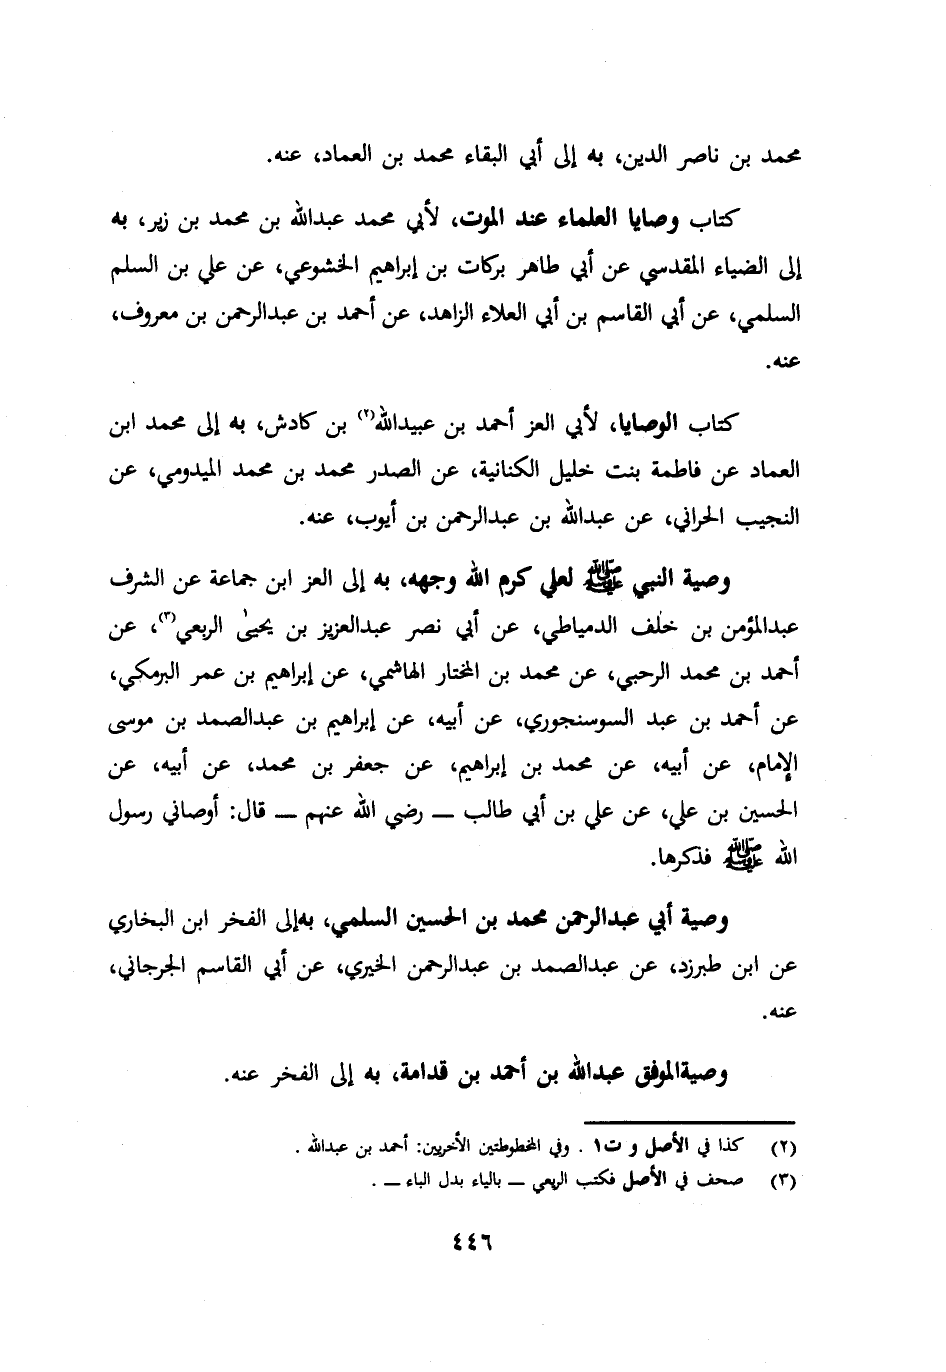 محمد بن ناصر الدين، به إلى أبي البقاء محمد بن العماد، عنه.
كتاب وصايا العلماء عند الموت، لأبي محمد عبدالله بن محمد بن زبر، به
إلى الضياء المقدسي عن أبي طاهر بركات بن إبراهيم الخشوعي، عن علي بن السلم
السلمي، عن أبي القاسم بن أبي العلاء الزاهد، عن أحمد بن عبدالرحمن بن معروف،
عنه.
كتاب الوصايا، لأبي العز أحمد بن عبيدالله(٢) بن كادش، به إلى محمد ابن
العماد عن فاطمة بنت خليل الكنانية، عن الصدر محمد بن محمد الميدومي، عن
النجيب الحراني، عن عبدالله بن عبدالرحمن بن أيوب، عنه.
وصية النبي ﷺ لعلي كرم الله وجهه، به إلى العز ابن جماعة عن الشرف
عبدالمؤمن بن خلف الدمياطي، عن أبي نصر عبدالعزيز بن يحيىٰ الربعي(٣)، عن
أحمد بن محمد الرحبي، عن محمد بن المختار الهاشمي، عن إبراهيم بن عمر البرمكي،
عن أحمد بن عبد السوسنجوري، عن أبيه، عن إبراهيم بن عبدالصمد بن موسى
الإمام، عن أبيه، عن محمد بن إبراهيم، عن جعفر بن محمد، عن أبيه، عن
الحسين بن علي، عن علي بن أبي طالب ــ رضي الله عنهم ــ قال: أوصاني رسول
الله ﷺ فذكرها.
وصية أبي عبدالرحمن محمد بن الحسين السلمي، به إلى الفخر ابن البخاري
عن ابن طبرزد، عن عبدالصمد بن عبدالرحمن الخيري، عن أبي القاسم الجرجاني،
عنه.
وصية الموفق عبدالله بن أحمد بن قدامة، به إلى الفخر عنه.
(٢) كذا في الأصل و ت١ . وفي المخطوطتين الأخريين: أحمد بن عبدالله .
(٣) صحف في الأصل فكتب الريعي ــ بالياء بدل الباء ــ .
٤٤٦